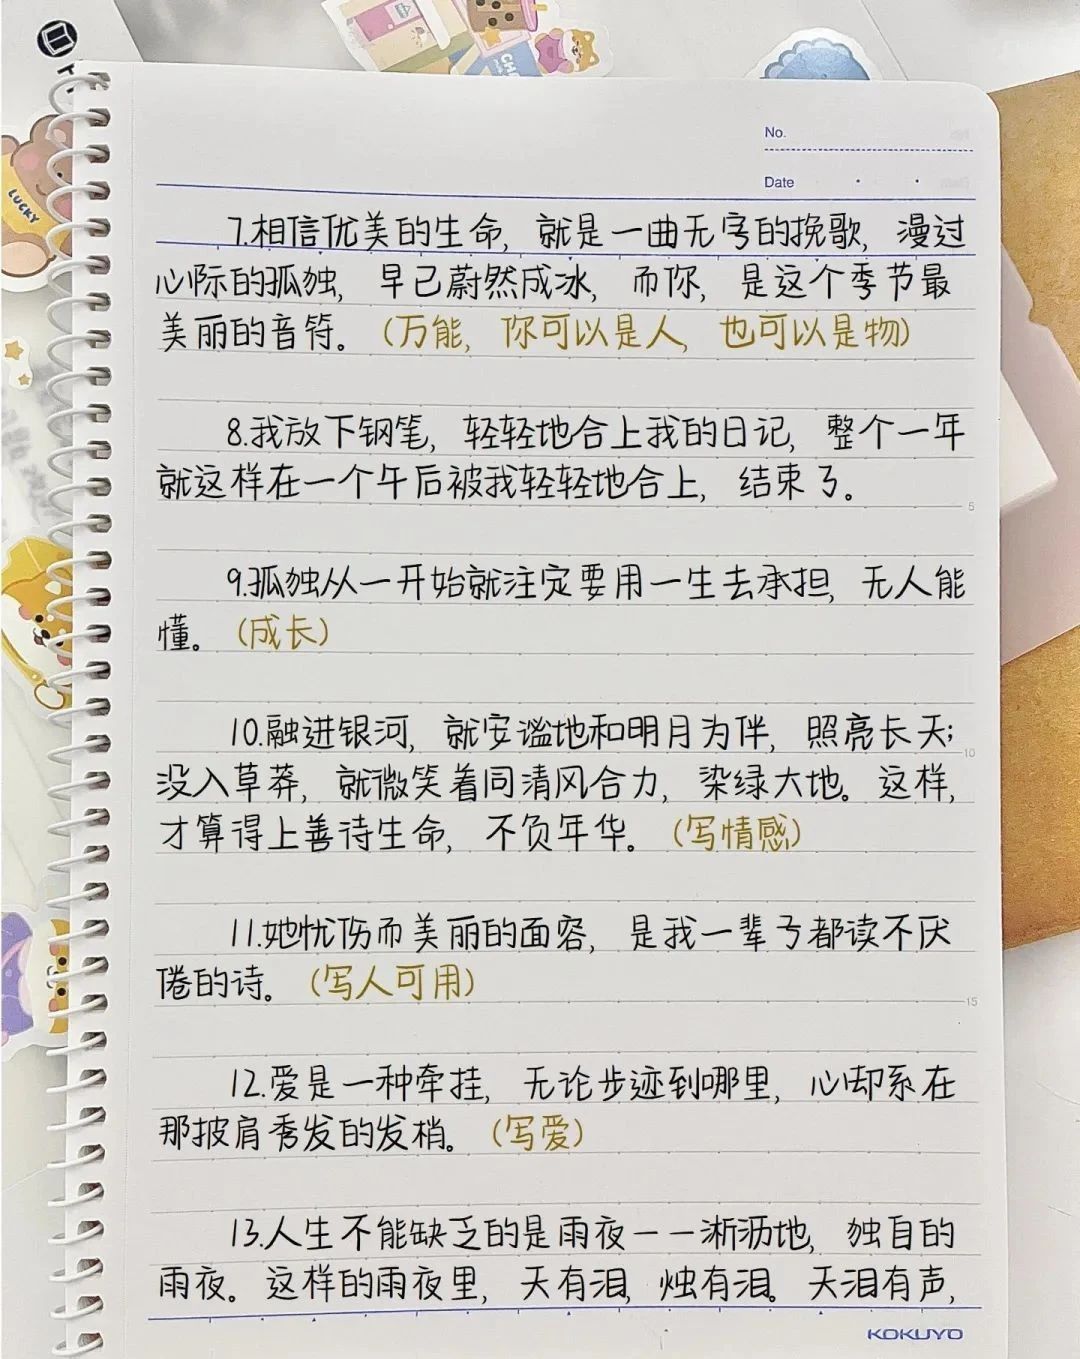 No.
Date
7.相信优美的生命,就是一曲无字的挽歌,漫过
心际的孤独,早已蔚然成冰,而你,是这个季节最
美丽的音符。(万能,你可以是人,也可以是物)
8.我放下钢笔,轻轻地合上我的日记,整个一年
就这样在一个午后被我轻轻地合上,结束了。
5
9.孤独从一开始就注定要用一生去承担,无人能
懂。(成长)
10.融进银河,就安谧地和明月为伴,照亮长天;
10
没入草莽,就微笑着同清风合力,染绿大地。这样,
才算得上善待生命,不负年华。(写情感)
11.她忧伤而美丽的面容,是我一辈子都读不厌
倦的诗。(写人可用)
15
12.爱是一种牵挂,无论步迹到哪里,心却系在
那披肩秀发的发梢。(写爱)
13.人生不能缺乏的是雨夜一一淅沥地,独自的
雨夜。这样的雨夜里,天有泪,烛有泪。天泪有声,
KOKUYO
LUCKY